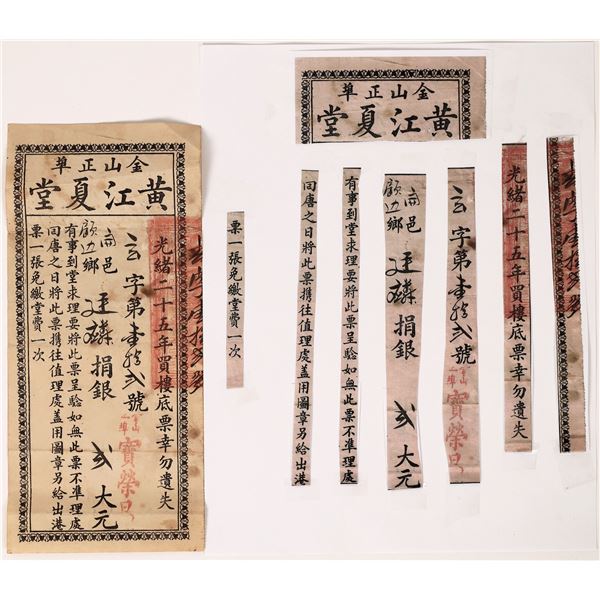 金山正埠
黃江夏堂
光緒二十五年買樓底票幸勿遺失
玄字第壹拾弍號
寶榮
邑
顧边鄉
捐銀 弍大元
有事到堂求理要將此票呈驗如無此票不準理處
回唐之日將此票携往值理處盖用圖章另給出港
票一張免繳堂費一次
金山正埠
黃江夏堂
光緒二十五年買樓底票幸勿遺失
玄字第壹拾弍號
寶榮
邑
顧边鄉
捐銀 弍大元
有事到堂求理要將此票呈驗如無此票不準理處
回唐之日將此票携往值理處盖用圖章另給出港
票一張免繳堂費一次